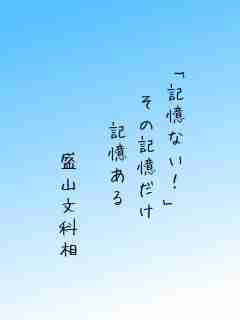 「記憶ない！」
その記憶だけ
記憶ある
盛山文科相